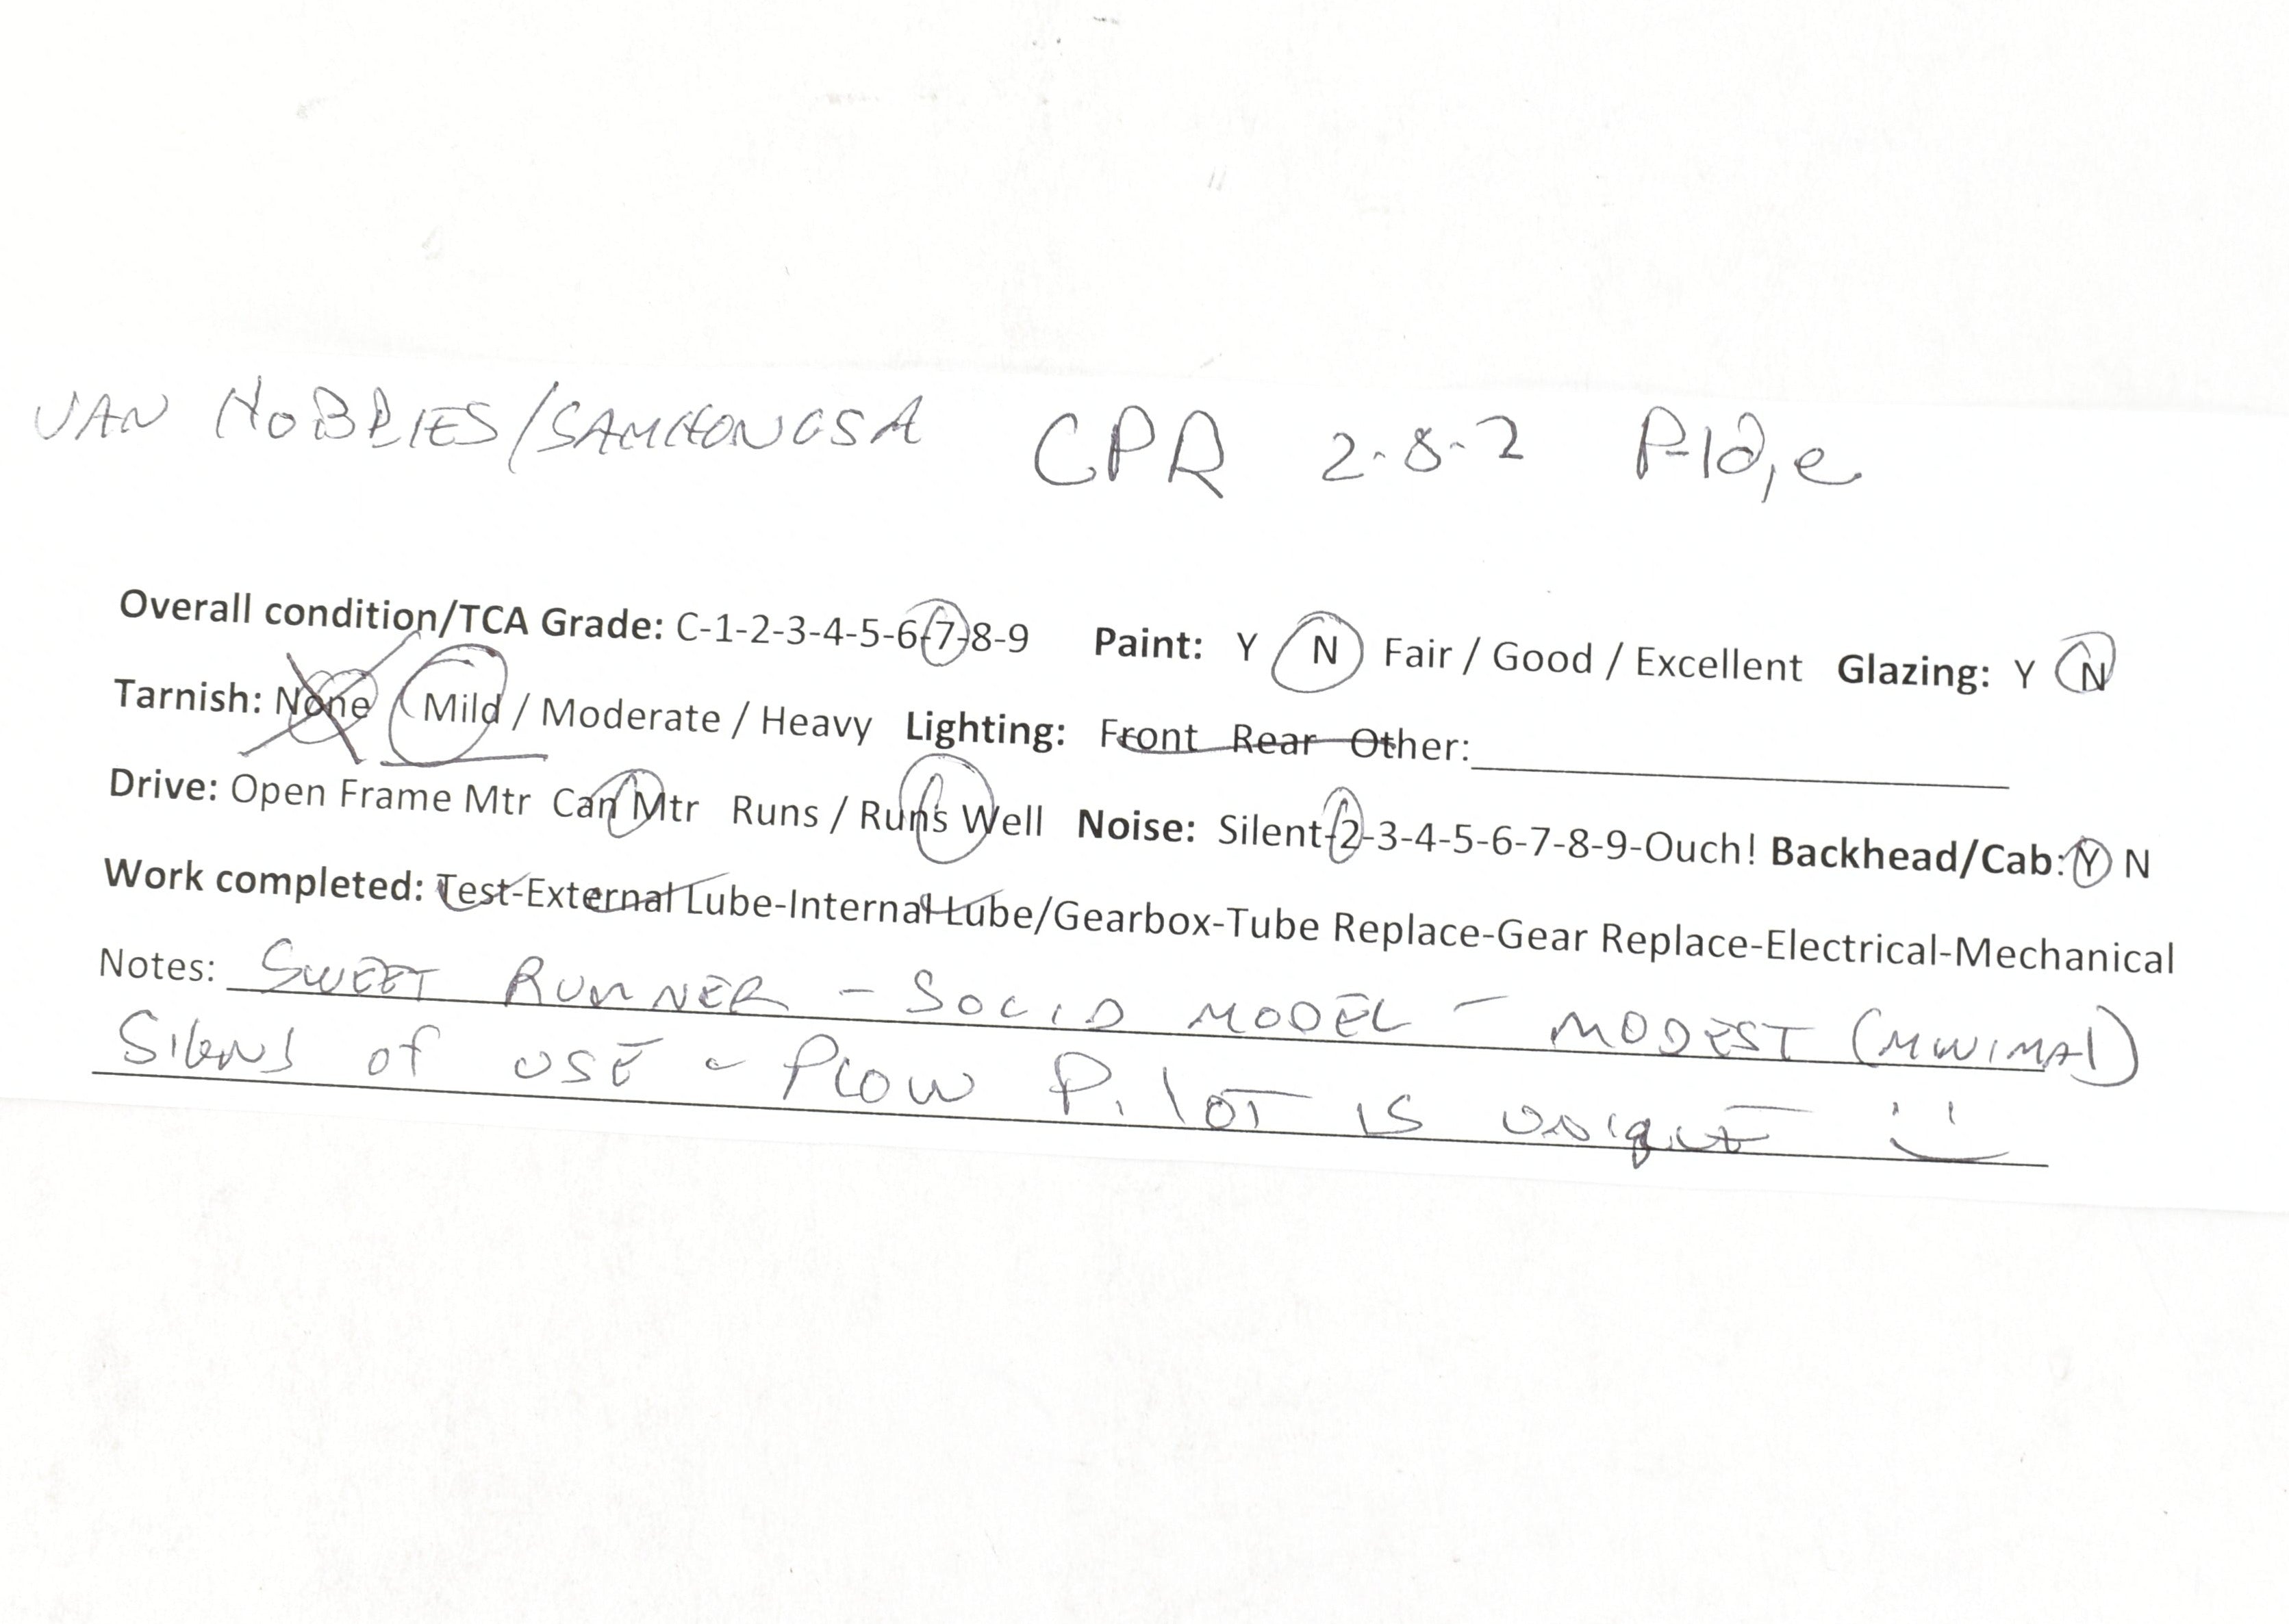 VAN HOBBIES/SAMHONGSA CPR 2-8-2 P-1d,e
Overall condition/TCA Grade: C-1-2-3-4-5-6-7-8-9 Paint: Y N Fair / Good / Excellent Glazing: Y N
Tarnish: None / Mild / Moderate / Heavy Lighting: Front Rear Other:
Drive: Open Frame Mtr Can Mtr Runs / Runs Well Noise: Silent-2-3-4-5-6-7-8-9-Ouch! Backhead/Cab: Y N
Work completed: Test-External Lube-Internal Lube/Gearbox-Tube Replace-Gear Replace-Electrical-Mechanical
Notes: SWEET RUNNER - SOLID MODEL - MODEST (MINIMAL)
SIGNS OF USE - PLOW PILOT IS UNIQUE